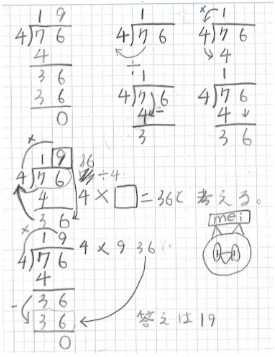 1 9
4)7 6
4
3 6
3 6
0
1
4)7 6
÷
1
4)7 6
4 -
3
×
1
4)7 6
4
1
4)7 6
4
3 6
×
1 9
4)7 6
4
3 6
36
÷4
4 × □ = 36と 考える。
mei
×
1 9
4)7 6
4
- 3 6
3 6
0
4 × 9 36
答えは19